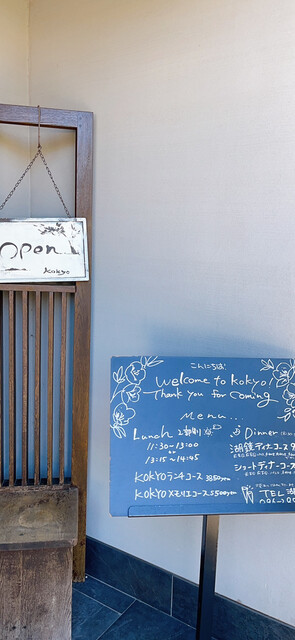 Open
kokyo
こんにちは!
Welcome to kokyo!
Thank you for coming
Menu...
Lunch 2部制
11:30-13:00
13:15~14:45
KOKYOランチコース 3850yen
KOKYOメモリエコース 5500yen
Dinner
湖鏡ディナーコース
ショートディナーコース
TEL